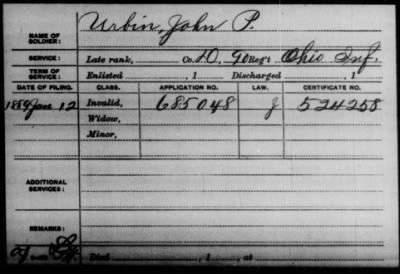 NAME OF SOLDIER: Urbin, John P.
SERVICE: Late rank, Co. D, 90 Reg't Ohio Inf.
TERM OF SERVICE: Enlisted , 1 Discharged , 1
DATE OF FILING. CLASS. APPLICATION NO. LAW. CERTIFICATE NO.
1889 Jan 12 Invalid, 685048 J 524258
Widow,
Minor,
ADDITIONAL SERVICES:
REMARKS:
Died , 1 , at